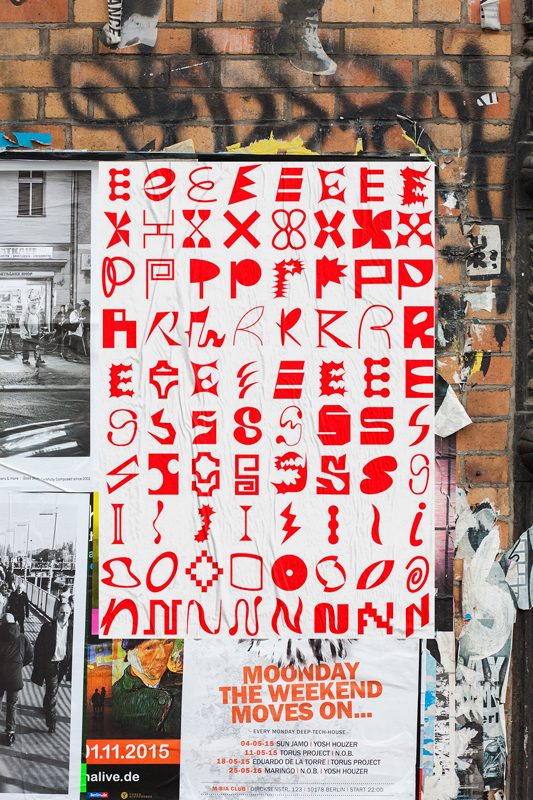 E e E E E E E E
X X X X X X X X
P P P P P P P P
R R R R R R R R
E E E E E E E E
S S S S S S S S
S S S S S S S S
I I I I I I I i
O O O O O O O O
N N N N N N N N
MOONDAY
THE WEEKEND
MOVES ON...
EVERY MONDAY DEEP-TECH-HOUSE
04-05-15 SUN JAMO | YOSH HOUZER
11-05-15 TORUS PROJECT | N.O.B.
18-05-15 EDUARDO DE LA TORRE | TORUS PROJECT
25-05-15 MARINGO | N.O.B. | YOSH HOUZER
M:BIA CLUB | DIRCKSENSTR. 123 | 10178 BERLIN | START 22:00
01.11.2015
nalive.de